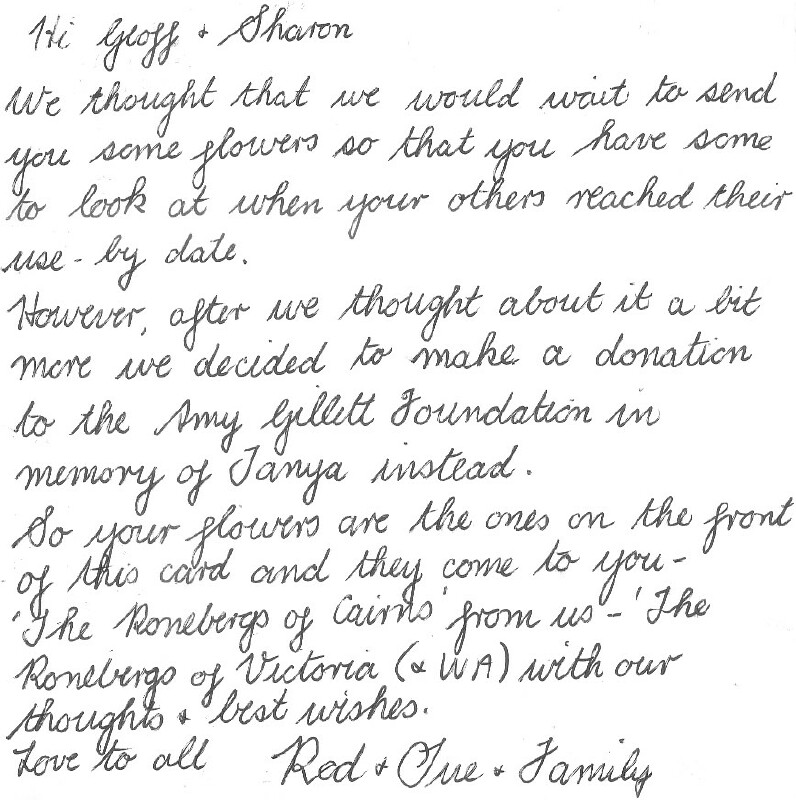 Hi Geoff & Sharon
We thought that we would wait to send
you some flowers so that you have some
to look at when your others reached their
use-by date.
However, after we thought about it a bit
more we decided to make a donation
to the Amy Gillett Foundation in
memory of Tanya instead.
So your flowers are the ones on the front
of this card and they come to you-
'The Ronebergs of Cairns' from us - 'The
Ronebergs of Victoria (& WA) with our
thoughts & best wishes.
Love to all Rod & Sue & Family